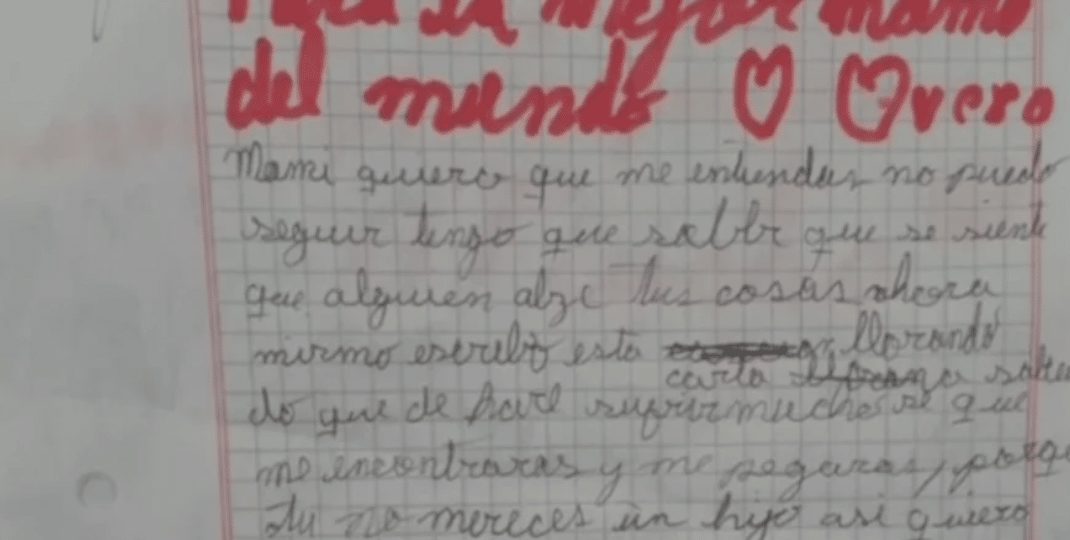 Para la mejor mamá
del mundo Overo
Mami quiero que me entiendas no puedo
seguir tengo que saber que se siente
que alguien alze tus cosas ahora
mirmo escribo esta llorando
carta
do que de hare sufrir mucho se que
me encontraras y me pegaras, porque
tu no mereces un hijo asi quiero